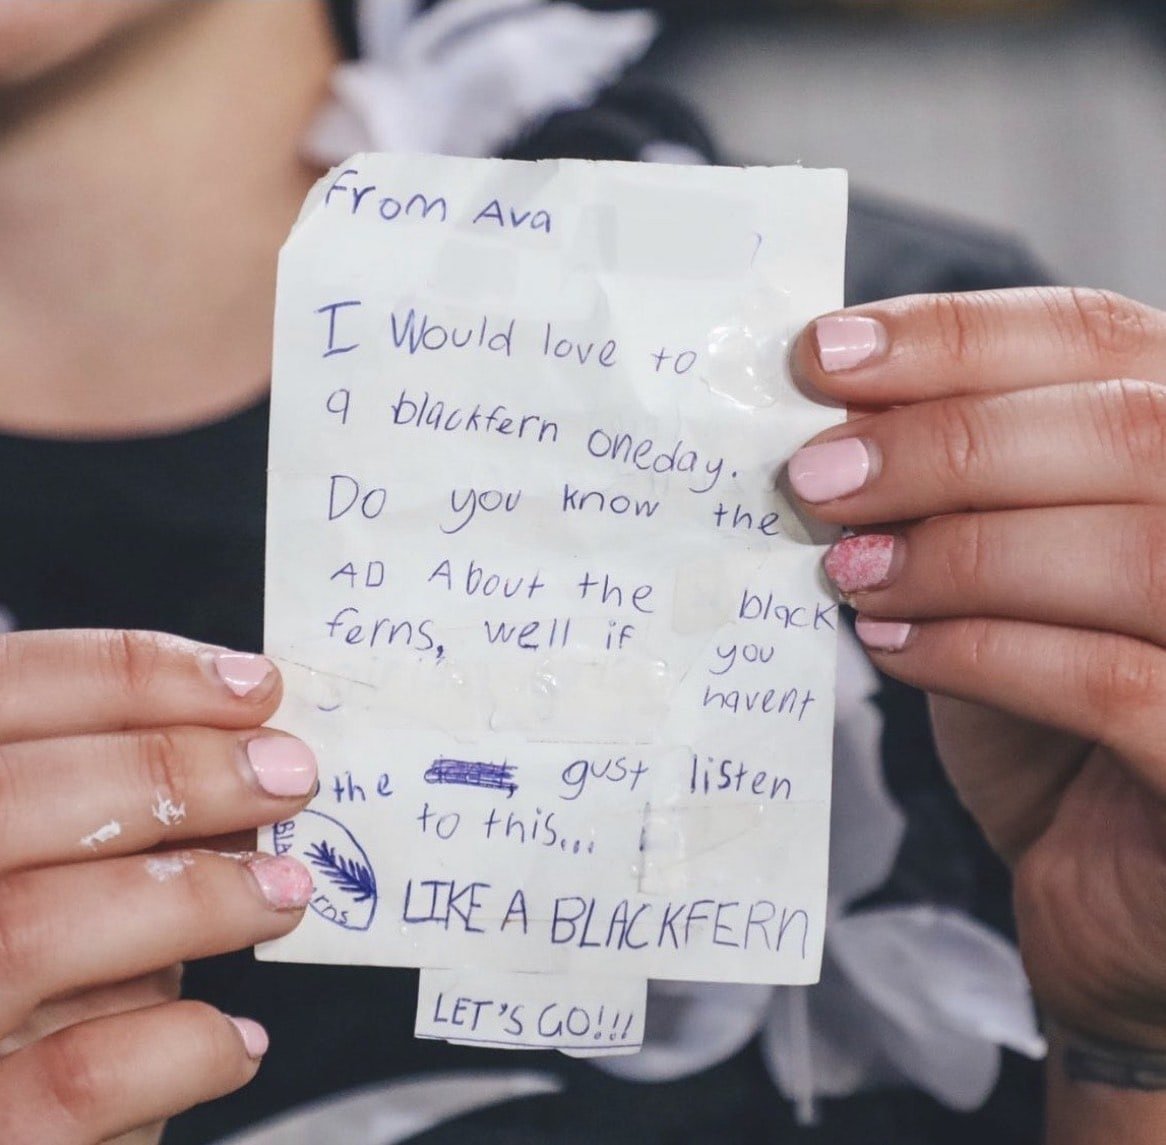 From Ava
I Would love to
a blackfern oneday.
Do you know the
AD About the black
ferns, well if you
havent
the gust listen
to this...
LIKE A BLACKFERN
LET'S GO!!!